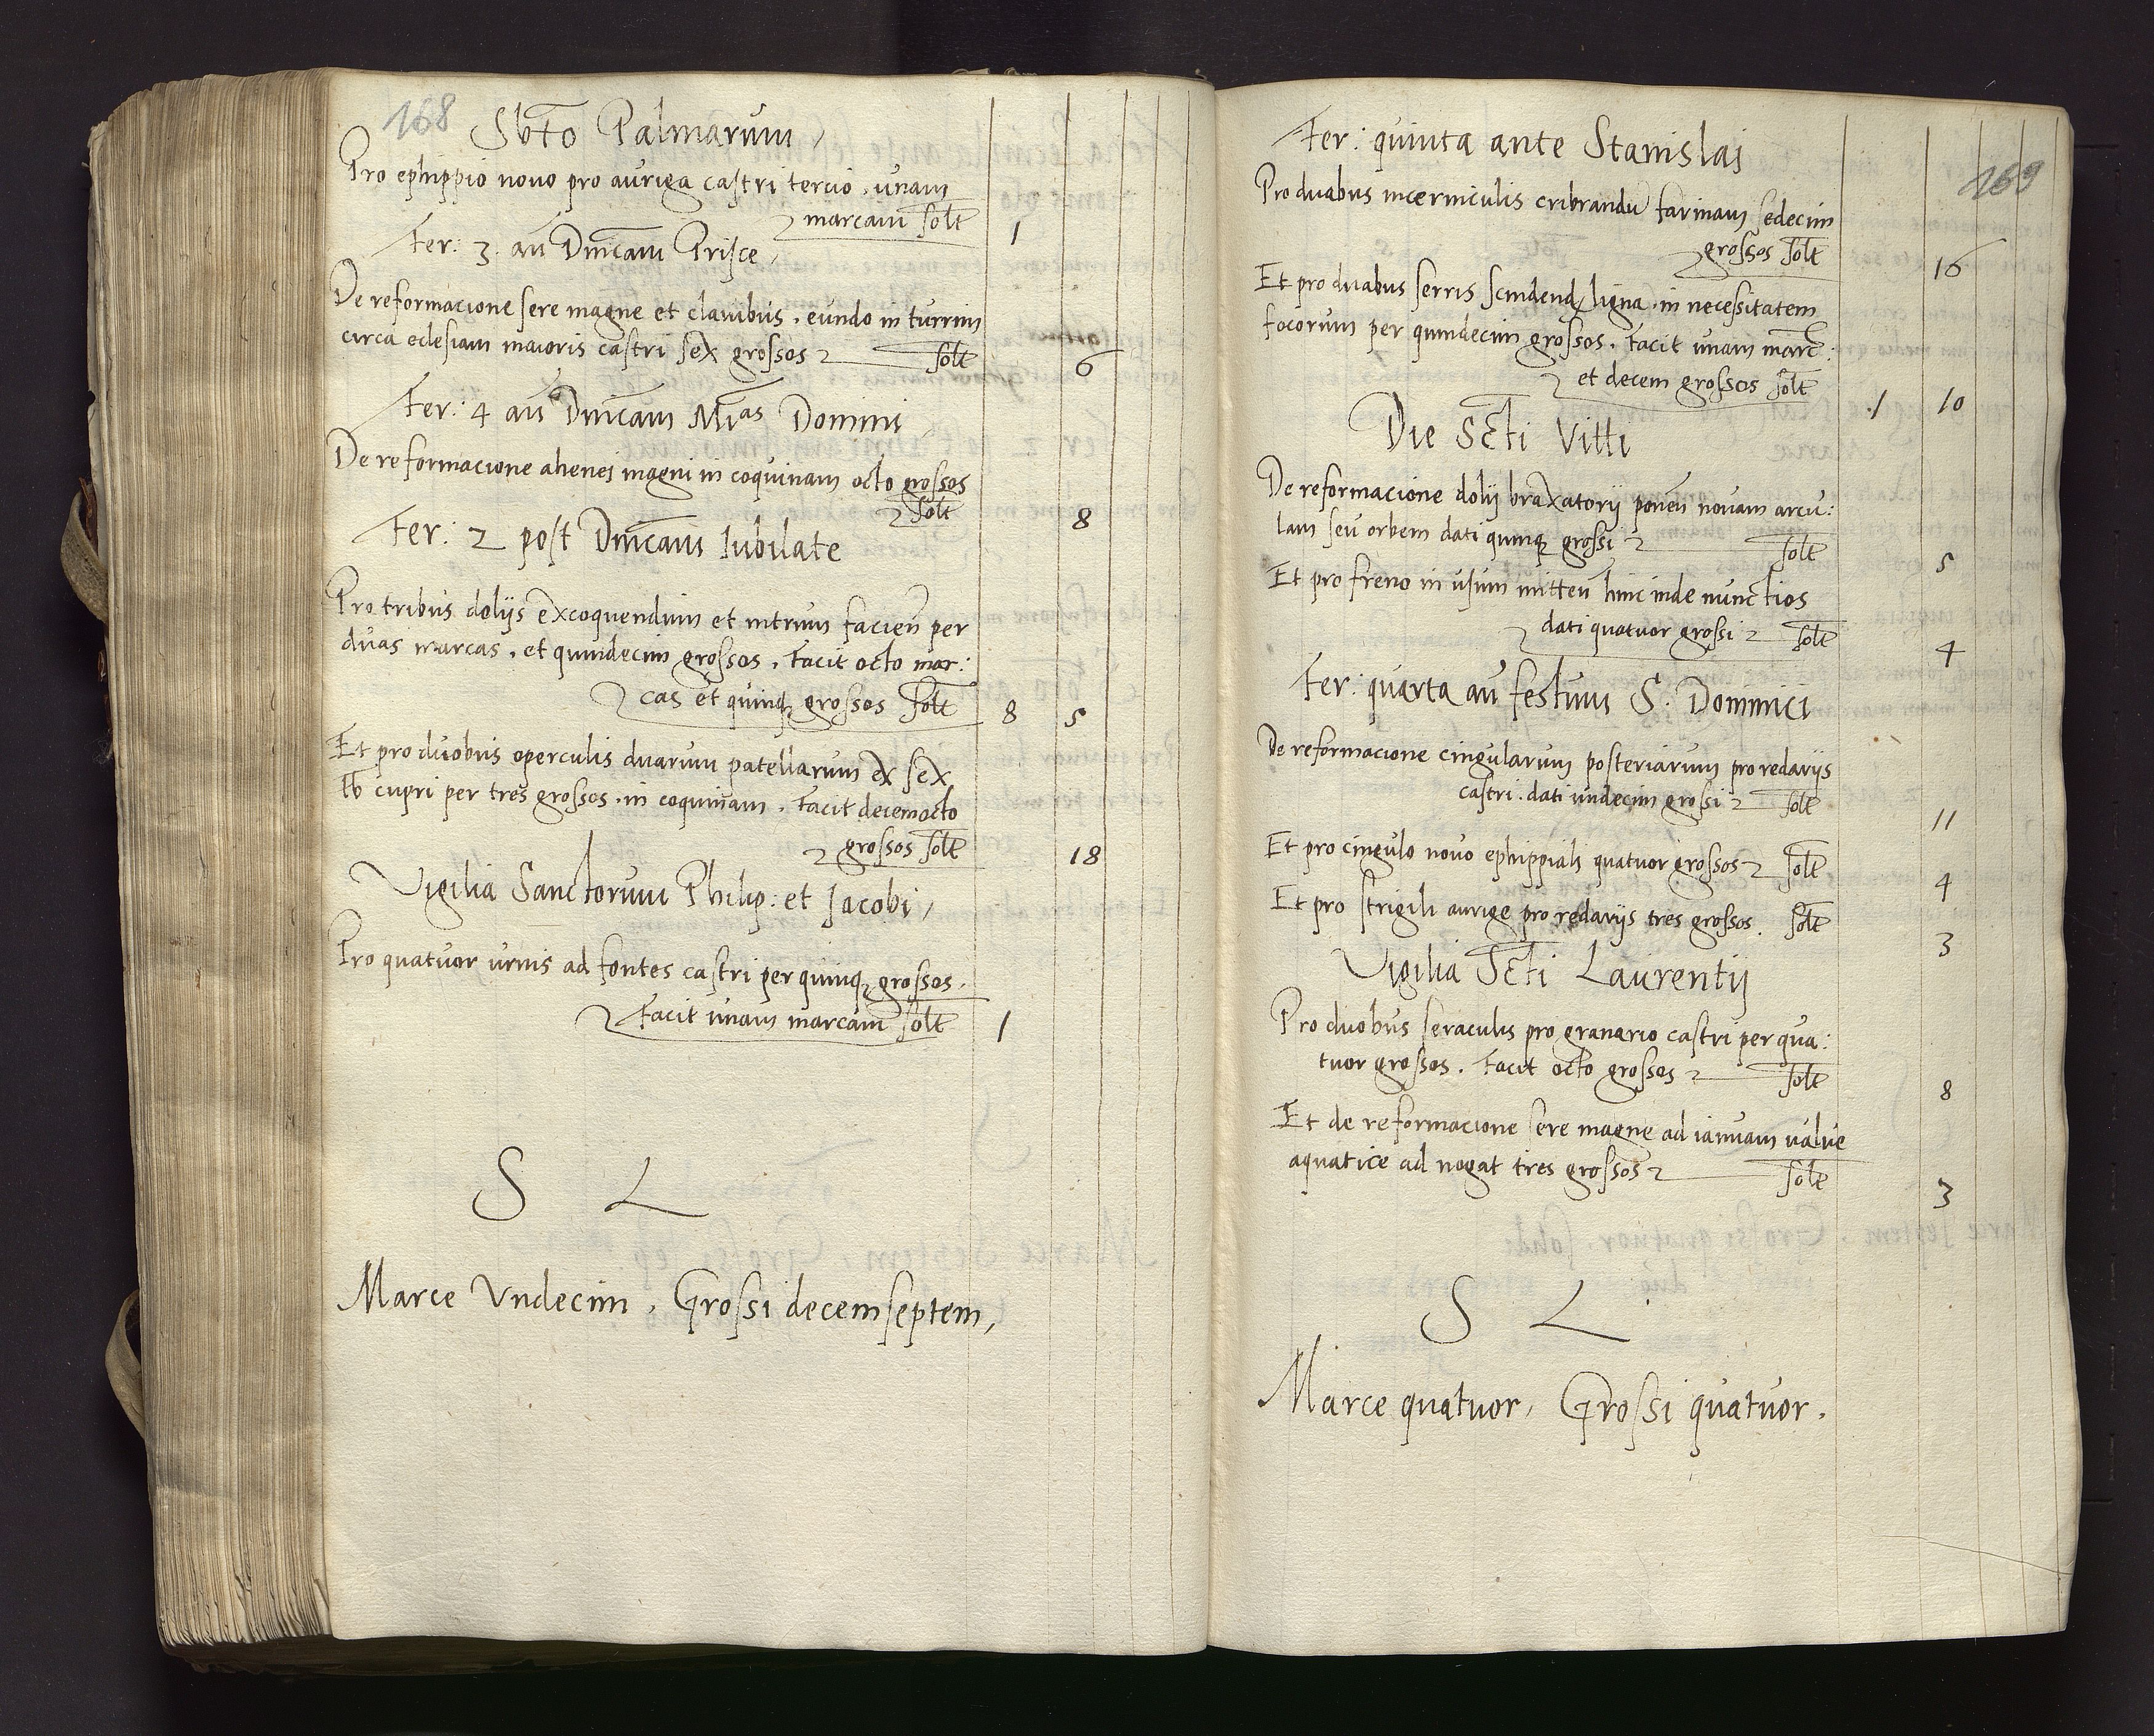 168
Sbto Palmarum,
Pro ephippio novo pro auriga castri tercio, unam
marcam solt 1
Fer: 3. an Dnicam Prisce,
De reformacione sere magne et clavibus, eundo in turrim
circa eclesiam maioris castri sex grossos solt 6
Fer: 4 an Dnicam Mias Domini
De reformacione ahenei magni in coquinam octo grossos
solt 8
Fer: 2 post Dnicam Iubilate
Pro tribus doliis excoquendum et nitrum facien per
duas marcas, et quindecim grossos. Facit octo mar:
cas et quinq grossos solt 8 5
Et pro duobus operculis duarum patellarum ex sex
lb cupri per tres grossos in coquinam. Facit decemocto
grossos solt 18
Vigilia Sanctorum Philip: et Jacobi,
Pro quatuor urnis ad fontes castri per quinq grossos.
Facit unam marcam solt 1
S L
Marce Undecim, Grossi decemseptem,
169
Fer: quinta ante Stanislaj
Pro duabus incerniculis cribrandu farinam sedecim
grossos solt 16
Et pro duabus serris scindend ligna, in necessitatem
focorum per quindecim grossos. Facit unam marc:
et decem grossos solt 1 10
Die Scti Vitti
De reformacione dolij braxatorij ponen novam arcu:
lam seu orbem dati quinq grossi solt 5
Et pro freno in usum mitten hinc inde nunctios
dati quatuor grossi solt 4
Fer: quarta an festum S. Dominici
De reformacione cingularum posteriarum pro redarijs
castri. dati undecim grossi solt 11
Et pro cingulo novo ephippiali quatuor grossos solt 4
Et pro strigili aurige pro redarijs tres grossos. solt 3
Vigilia Scti Laurentij
Pro duobus seraculis pro granario castri per qua:
tuor grossos. Facit octo grossos solt 8
Et de reformacione sere magne ad ianuam value
aquatice ad nogat tres grossos solt 3
S L
Marce quatuor, Grossi quatuor.